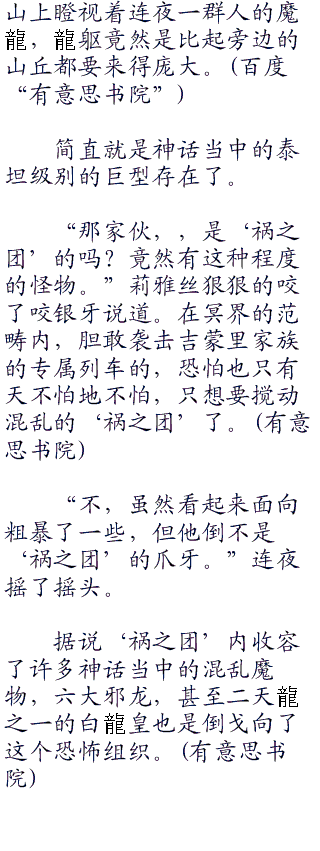 山上瞪视着连夜一群人的魔
龍，龍躯竟然是比起旁边的
山丘都要来得庞大。(百度
“有意思书院”)
简直就是神话当中的泰
坦级别的巨型存在了。
“那家伙，，是‘祸之
团’的吗？竟然有这种程度
的怪物。”莉雅丝狠狠的咬
了咬银牙说道。在冥界的范
畴内，胆敢袭击吉蒙里家族
的专属列车的，恐怕也只有
天不怕地不怕，只想要搅动
混乱的‘祸之团’了。(有意
思书院)
“不，虽然看起来面向
粗暴了一些，但他倒不是
‘祸之团’的爪牙。”连夜
摇了摇头。
据说‘祸之团’内收容
了许多神话当中的混乱魔
物，六大邪龙，甚至二天龍
之一的白龍皇也是倒戈向了
这个恐怖组织。(有意思书
院)